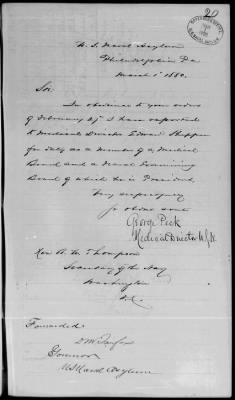 20
U.S. Naval Asylum
Philadelphia Pa
March 1st 1880.
Sir:
In obedience to your orders
of February 27th I have reported
to Medical Director Edward Shippen
for duty as a member of a Medical
Board and a Naval Examining
Board of which he is President.
Very respectfully
Yr obdt servt
George Peck
Medical Director U.S.N.
Hon R. W. Thompson
Secretary of the Navy
Washington
D.C.
Forwarded
Governor
US Naval Asylum